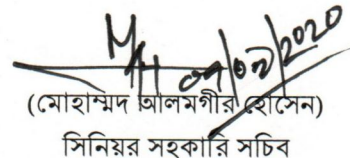 ০৭/০৯/2020
(মোহাম্মদ আলমগীর হোসেন)
সিনিয়র সহকারি সচিব